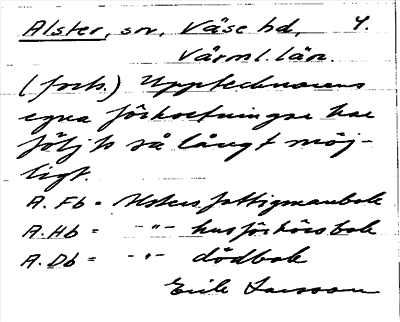 Alster, sn, Väse hd, 4.
Värml. län.
(forts.) Upptecknarens
egna förkortningar har
följts så långt möj-
ligt.
A. Fb = Alsters fattigmanbok
A. Hb = -"- husförhörsbok
A. Db = -"- dödbok
Erik Larsson